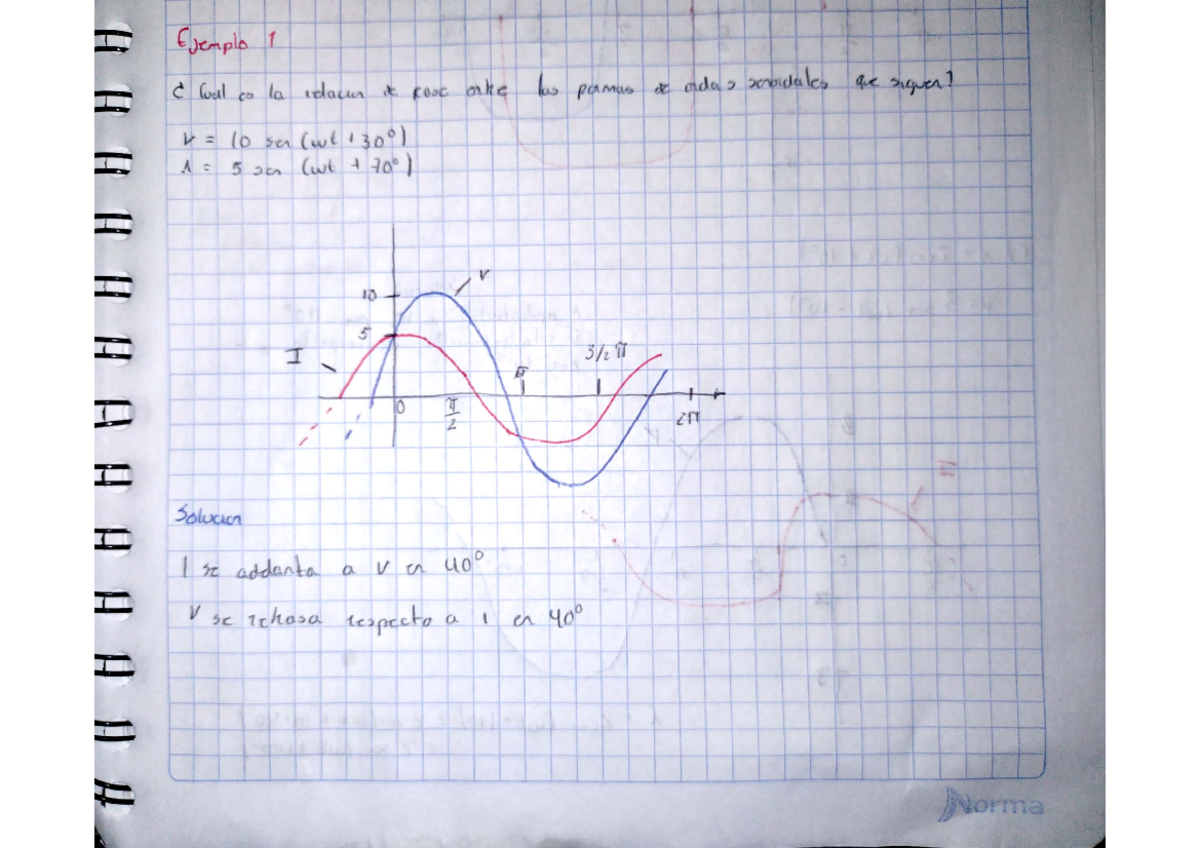 Ejemplo 1
¿ Cual es la relacion de fase entre los formas de ondas senoidales que siguen?
V = 10 sen (wt + 30°)
i = 5 sen (wt + 70°)
V
10
5
I
3/2 π
π
0
π/2
2π
Solucion
I se adelanta a V en 40°
V se rehasa respecto a i en 40°
Norma